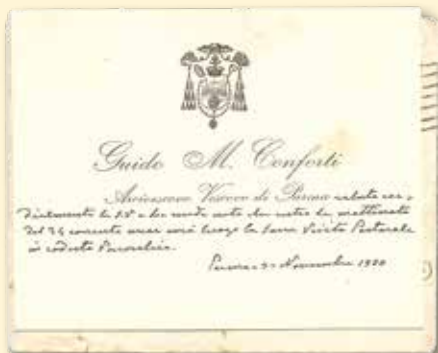 Guido M. Conforti
Arcivescovo Vescovo di Parma saluta cor-
dialmente la S.V. e le rende noto che nella mattinata
del 24 corrente mese avrà luogo la Sacra Visita Pastorale
in codesta Parrocchia.
Parma Novembre 1920